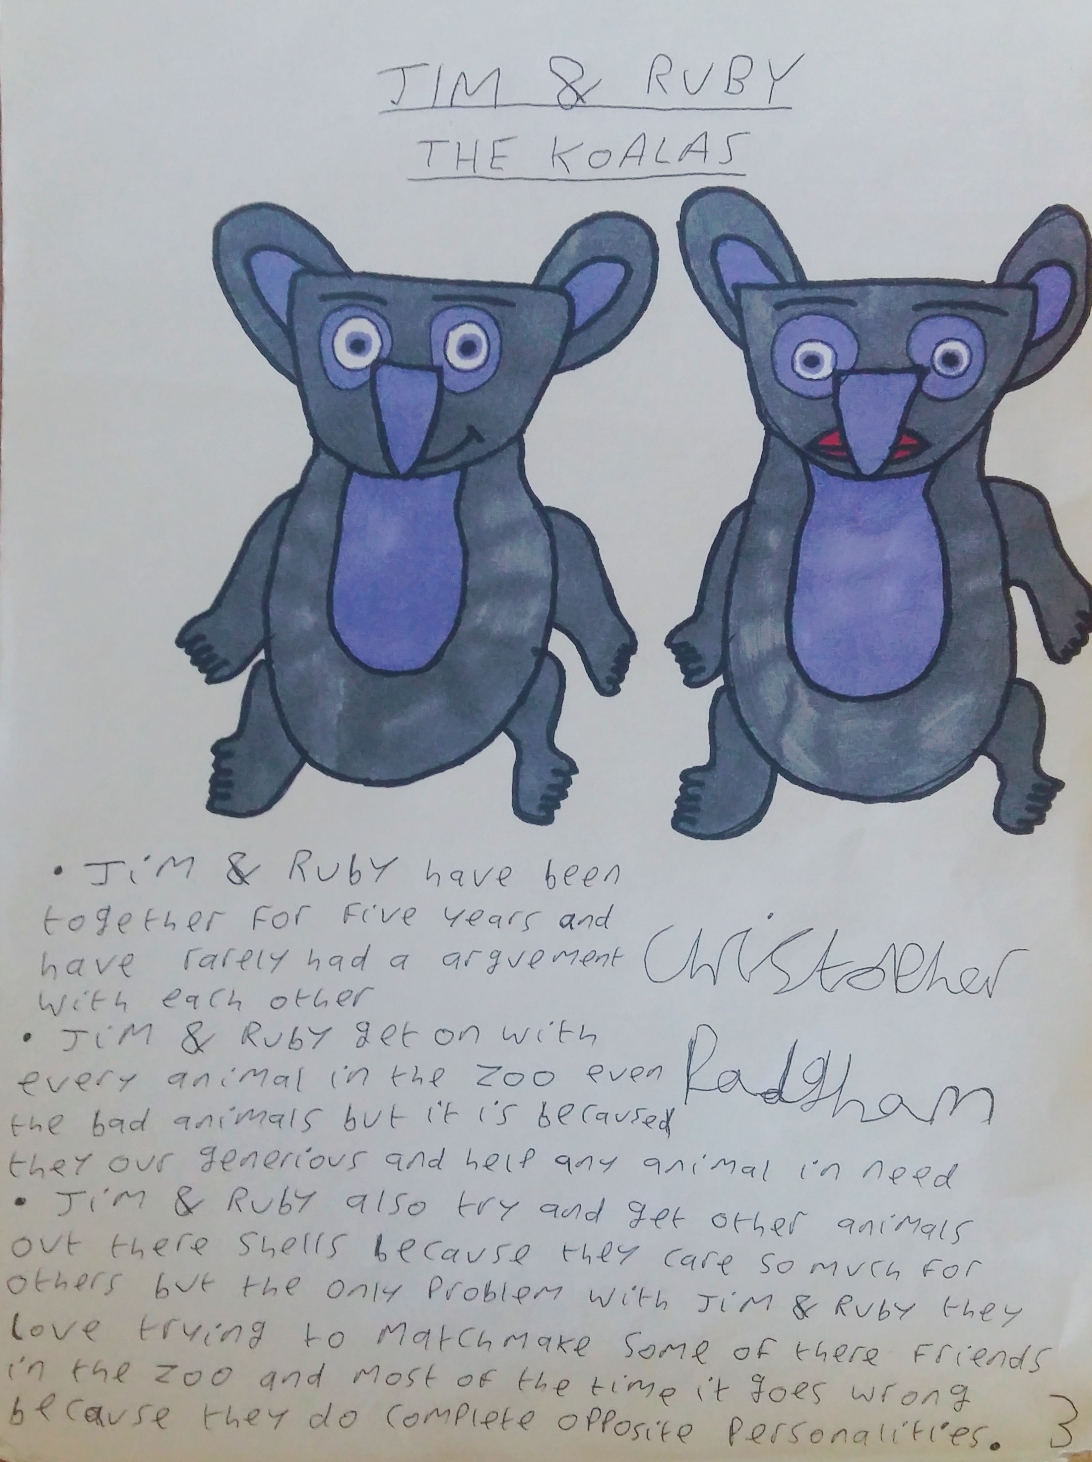 JIM & RUBY
THE KOALAS
• JiM & RUBY have been
together for five years and
have rarely had a arguement
with each other
Christopher
• JiM & RUBY get on with
every animal in the zoo even
Radgham
the bad animals but it is because
they our generious and help any animal in need
• JiM & RUBY also try and get other animals
out there shells because they care so much for
others but the only problem with JiM & RUBY they
love trying to matchmake some of there friends
in the zoo and most of the time it goes wrong
because they do complete opposite personalities.
3